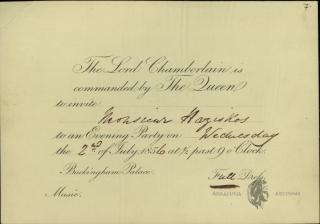 7
The Lord Chamberlain is
commanded by The Queen
to invite
Monsieur
to an Evening Party on Wednesday
the 2nd of July, 1856 at ½ past 9 o'Clock.
Buckingham Palace.
Full Dress
Music.